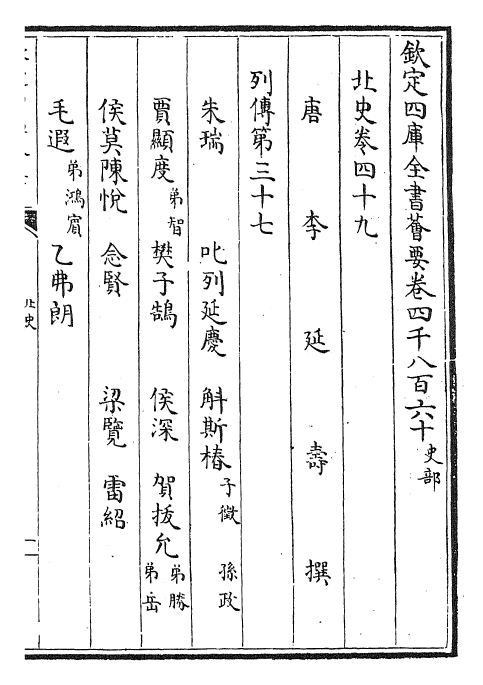 欽定四庫全書薈要卷四千八百六十 史部
北史卷四十九
唐 李 延 壽 撰
列傳第三十七
朱瑞 叱列延慶 斛斯椿 子徵 孫政
賈顯度 弟智 樊子鵠 侯深 賀拔允 弟勝 弟岳
侯莫陳悅 念賢 梁覽 雷紹
毛遐 弟鴻賓 乙弗朗
北史
一